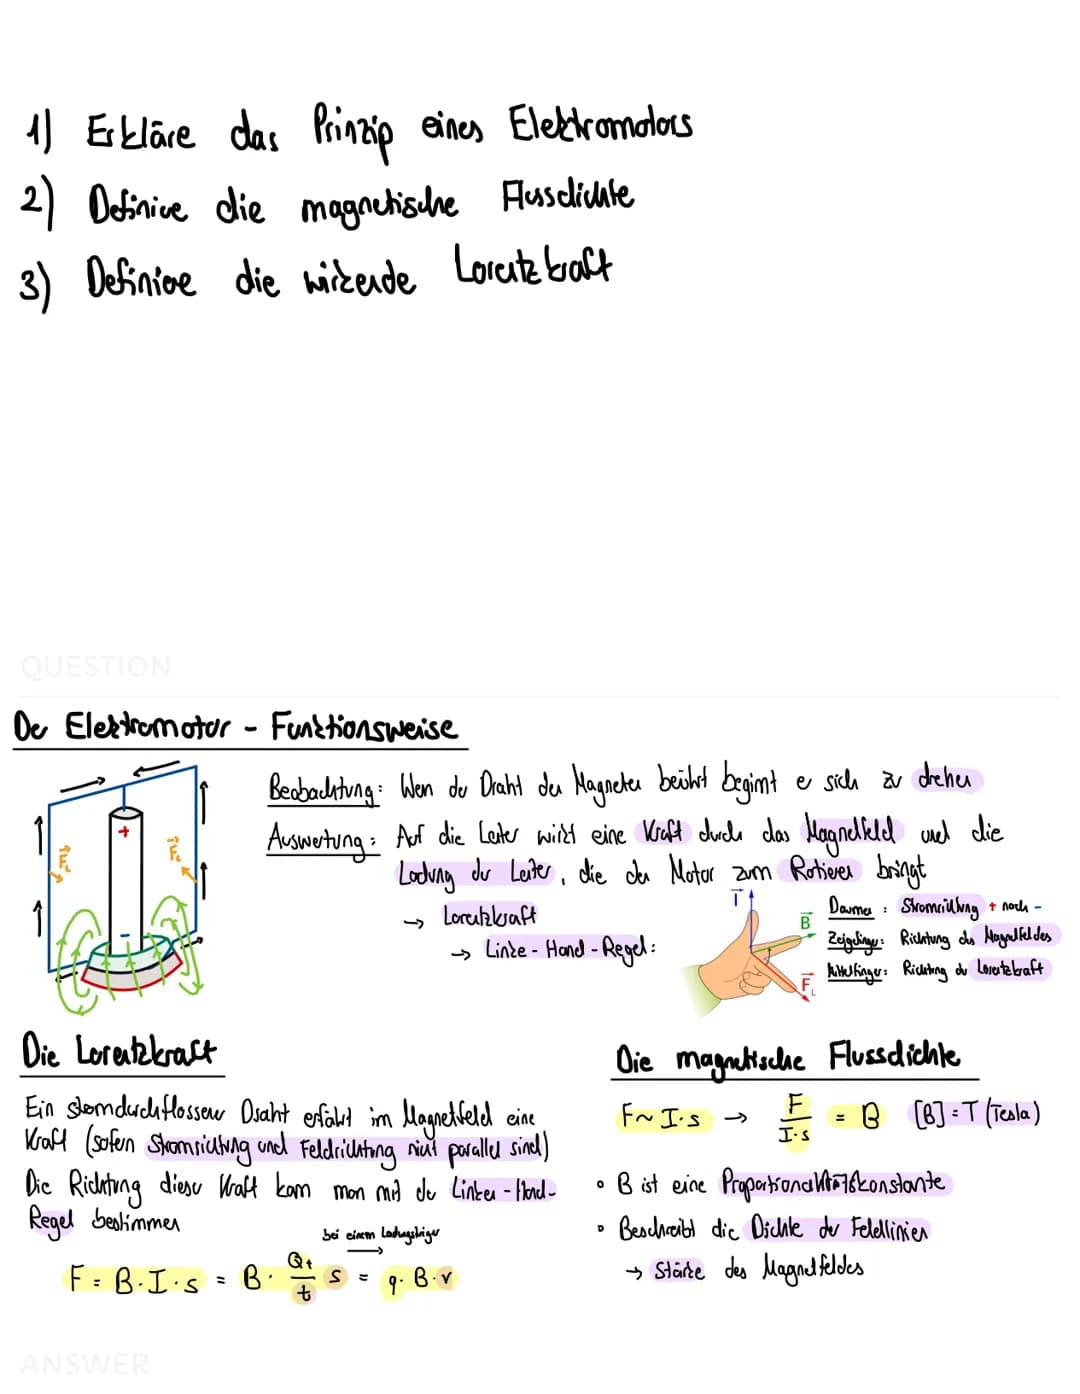 1) Erkläre das Prinzip eines Elektromotors
2) Definire die magnetische Flussdichte
3) Definiere die wirkende Lorentzkraft
QUESTION
Der Elektromotor - Funktionsweise
Beobachtung: Wenn der Draht den Magneten berührt beginnt er sich zu drehen
Auswertung: Auf die Leiter wirkt eine Kraft durch das Magnetfeld und die
Ladung der Leiter, die den Motor zum Rotieren bringt
→ Lorentzkraft
→ Linke-Hand-Regel:
+
-
F_L
F_L
I
B
F_L
Daumen: Stromrichtung + nach -
Zeigefinger: Richtung des Magnetfeldes
Mittelfinger: Richtung der Lorentzkraft
Die Lorentzkraft
Ein stromdurchflossener Draht erfährt im Magnetfeld eine
Kraft (sofern Stromrichtung und Feldrichtung nicht parallel sind)
Die Richtung dieser Kraft kann man mit der Linken-Hand-
Regel bestimmen
bei einem Ladungsträger
F = B·I·s = B· Q_t/t s = q·B·v
Die magnetische Flussdichte
F ~ I·s → F/I·s = B [B] = T (Tesla)
• B ist eine Proportionalitätskonstante
• Beschreibt die Dichte der Feldlinien
→ Stärke des Magnetfeldes
ANSWER